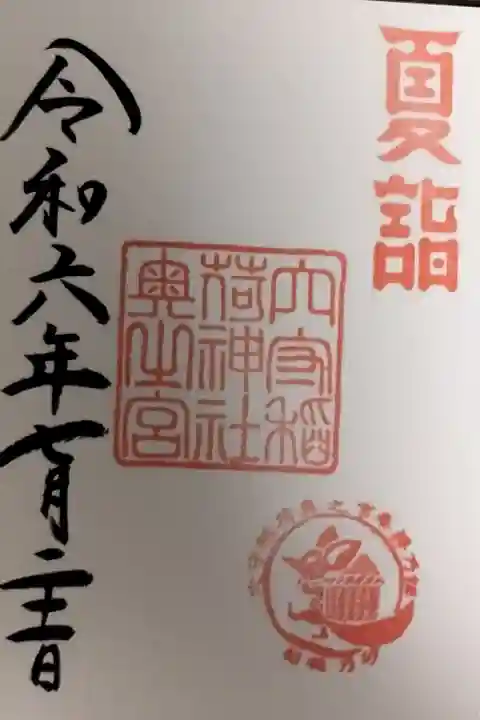 夏詣
穴守稲
荷神社
奥之宮
令和六年七月二十三日